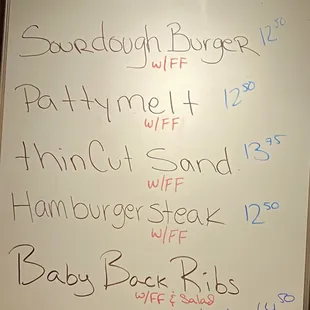 Sourdough Burger 12⁵⁰
w/FF
Pattymelt 12⁵⁰
w/FF
thinCut Sand. 13⁹⁵
w/FF
Hamburger Steak 12⁵⁰
w/FF
Baby Back Ribs
w/FF & Salad